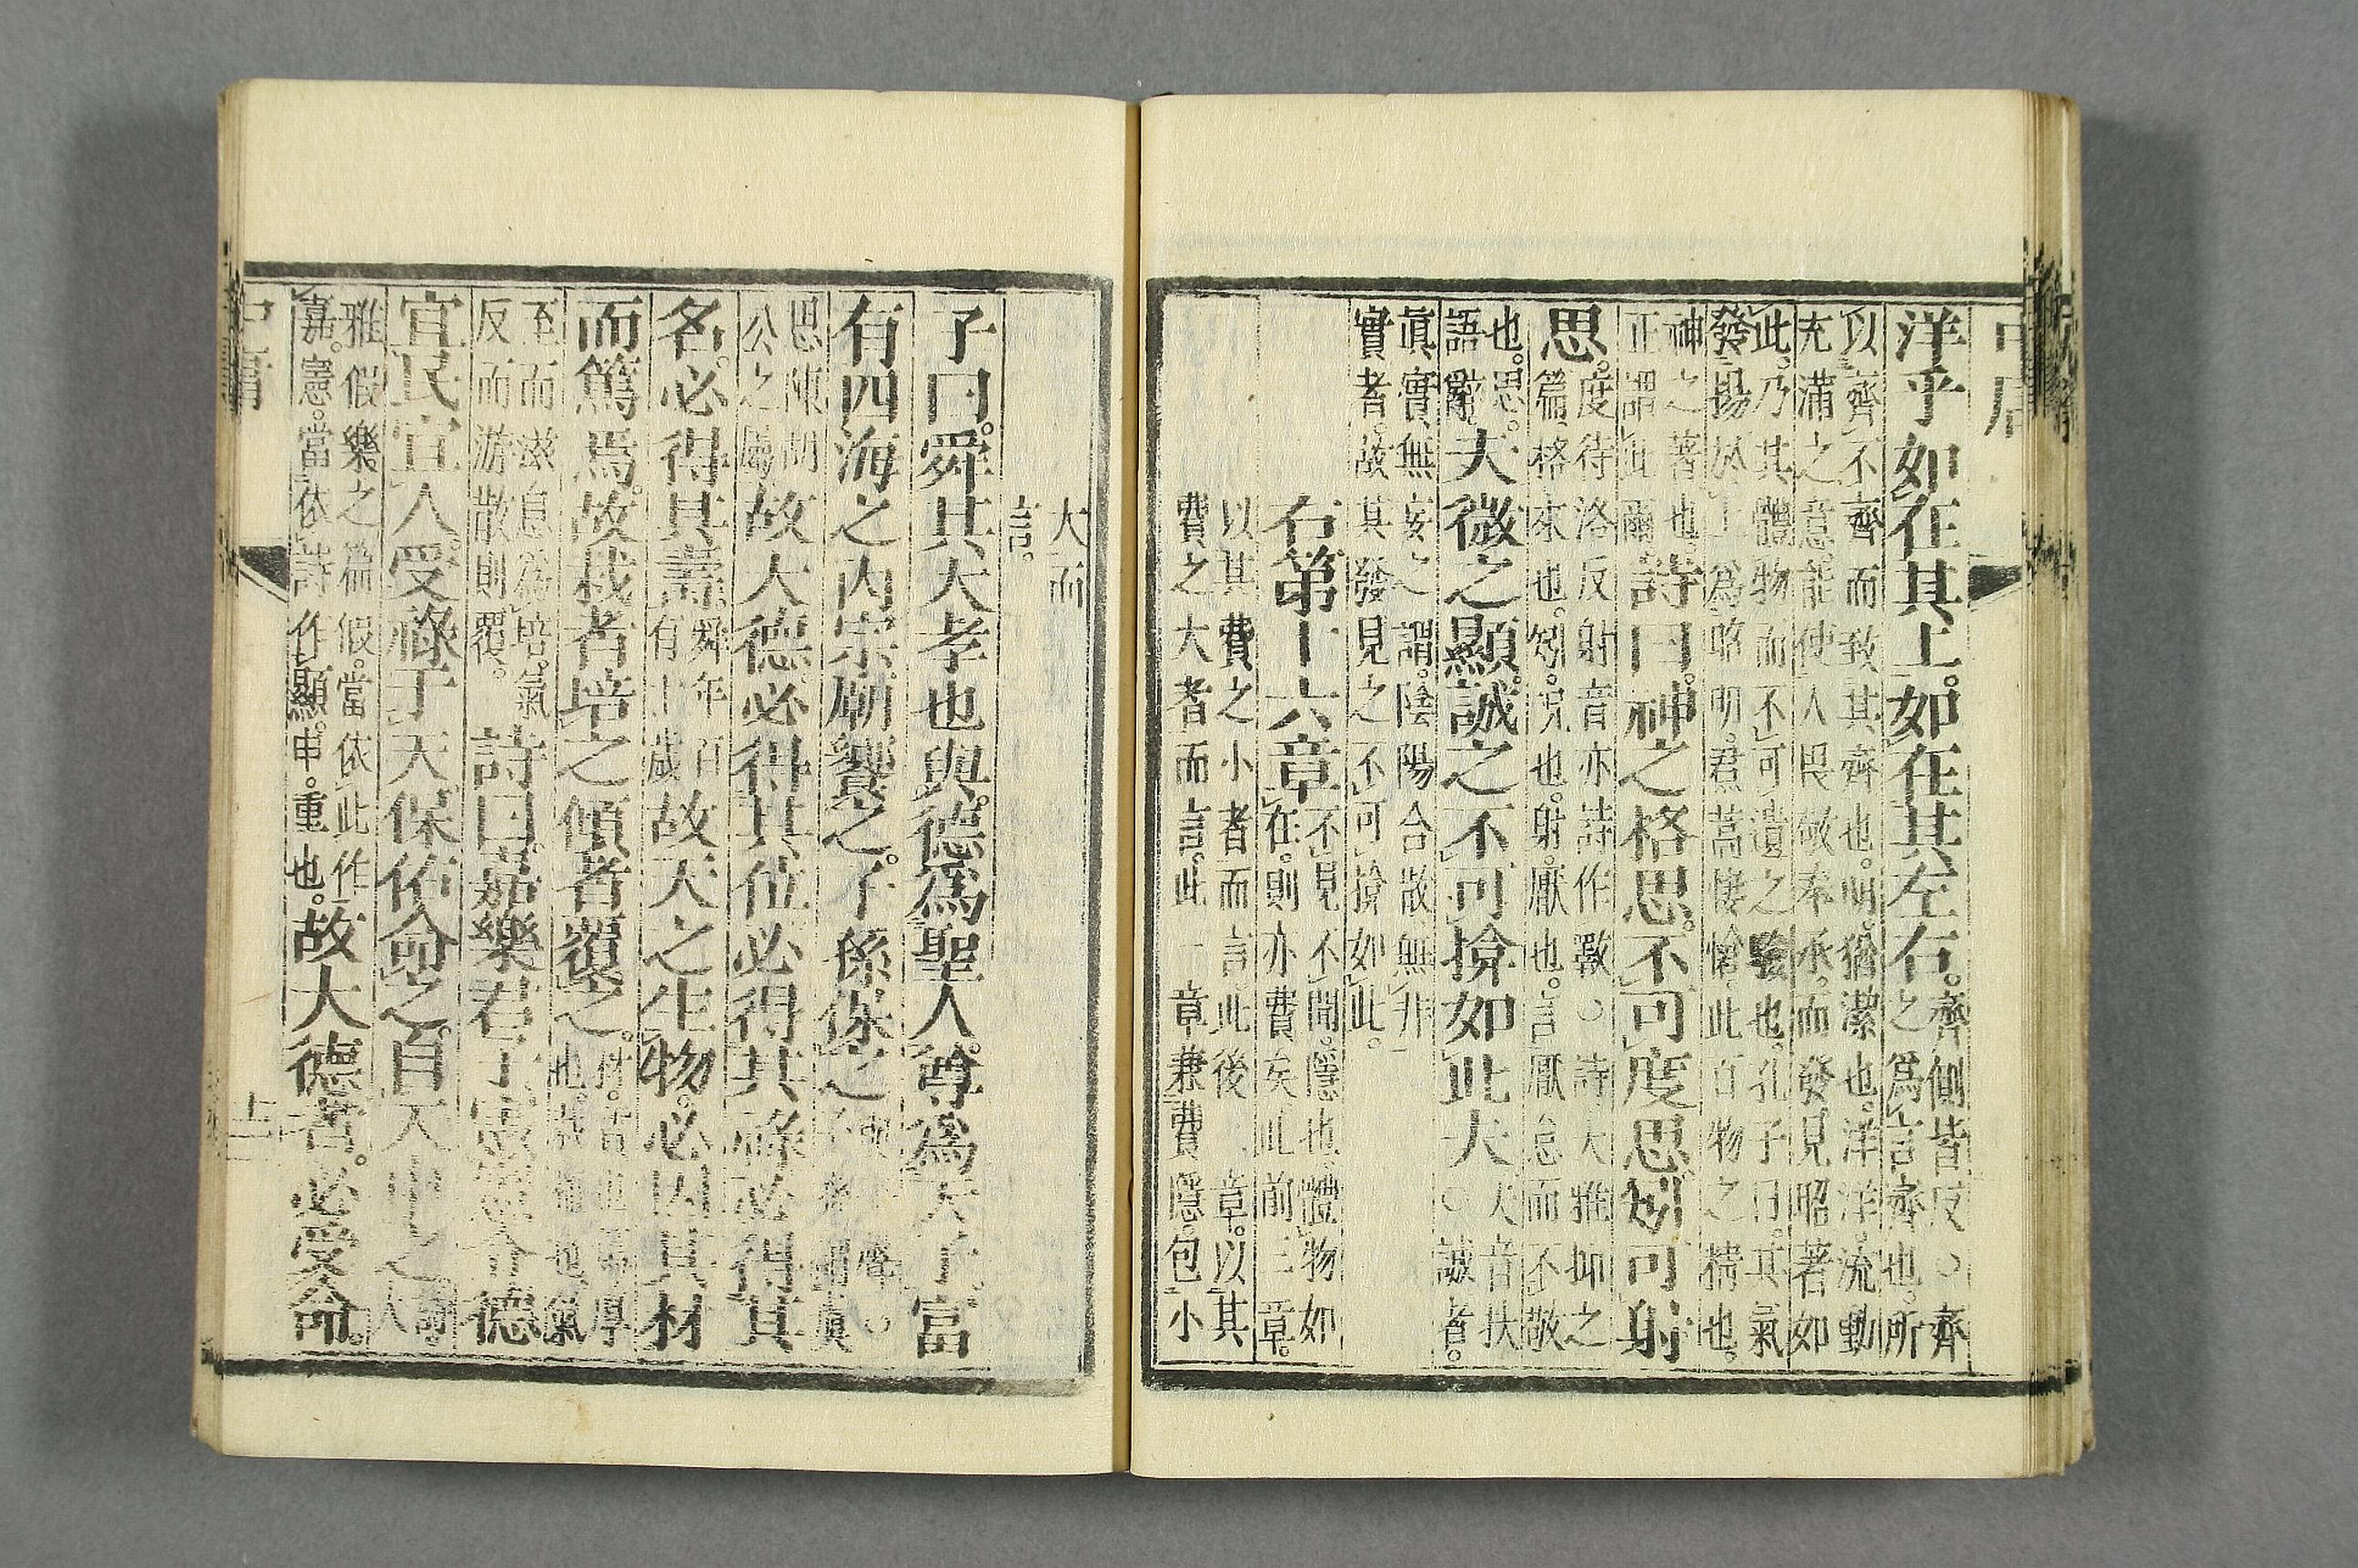 中庸
洋乎如在其上。如在其左右。齊側皆反○齊
之爲言齊也。所
以齊不齊而致其齊也。明。猶潔也。洋洋。流動
充滿之意。能使人畏敬奉承。而發見昭著如
此。乃其體物而不可遺之驗也。孔子曰。其氣
發揚於上。爲昭明。焄蒿悽愴。此百物之精也。
神之著也。
正謂此爾
詩曰。神之格思。不可度思。矧可射
思。度待洛反射音亦詩作斁○詩大雅抑之
篇。格。來也。矧。況也。射。厭也。言厭怠而不敬
也。思。
語辭。
夫微之顯。誠之不可揜如此夫夫音扶
○誠者。
眞實無妄之謂。陰陽合散無非
實者。故其發見之不可揜如此。
右第十六章不見不聞。隱也。體物如
在。則亦費矣此前三章。
以其費之小者而言。此後三章。以其
費之大者而言。此一章兼費隱。包小
大而
言。
子曰。舜其大孝也與。德爲聖人。尊爲天子。富
有四海之內宗廟饗之。子孫保之與平聲○
子孫謂虞
思陳胡
公之屬
故大德。必得其位必得其祿必得其
名。必得其壽。舜年百
有十歲
故天之生物。必因其材
而篤焉。故栽者培之傾者覆之。材。質也篤厚
也。栽植也氣
至而滋息爲培。氣
反而游散則覆。
詩曰。嘉樂君子憲憲令德
宜民宜人。受祿于天保佑命之。自天申之詩。大
雅假樂之篇假。當依此作
嘉。憲。當依詩作顯。申。重也。故大德者。必受命。
中庸
十二